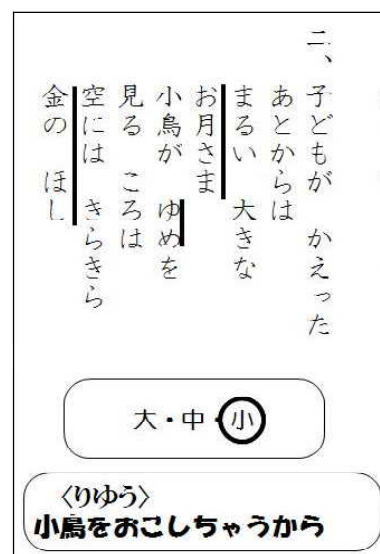 二、子どもが　かえった
あとからは
まるい　大きな
お月さま
小鳥が　ゆめを
見る　ころは
空には　きらきら
金の　ほし
大・中・小
〈りゆう〉
小鳥をおこしちゃうから